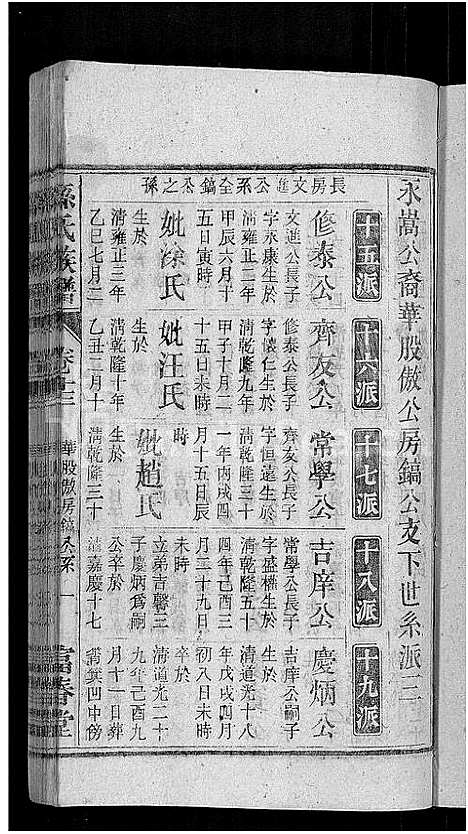 永嵩公裔華股傲公房鎬公支下世系派三
十五派
十六派
十七派
十八派
十九派
長房文進公系全鎬公之孫
修泰公
文進公長子
字永康生於
清雍正二年
甲辰六月十
五日寅時
妣涂氏
生於
清雍正三年
乙巳七月二
齊友公
修泰公長子
字懷仁生於
清乾隆九年
甲子十月二
十五日未時
妣汪氏
生於
清乾隆十年
乙丑二月十
常學公
齊友公長子
字恒遠生於
清乾隆三十
一年丙戌四
月十五日辰
時
妣趙氏
生於
清乾隆三十
吉庠公
常學公長子
字盛權生於
清乾隆五十
四年己酉三
月二十九日
未時
立弟吉馨三
子慶炳爲嗣
公卒於
清嘉慶十七
慶炳公
吉庠公嗣子
清道光十八
年戊戌四月
初八日未時
卒於
清道光二十
九年己酉九
月十一日葬
凹中傍
孫氏族譜
卷十三
華股傲房鎬公系
一
富春堂